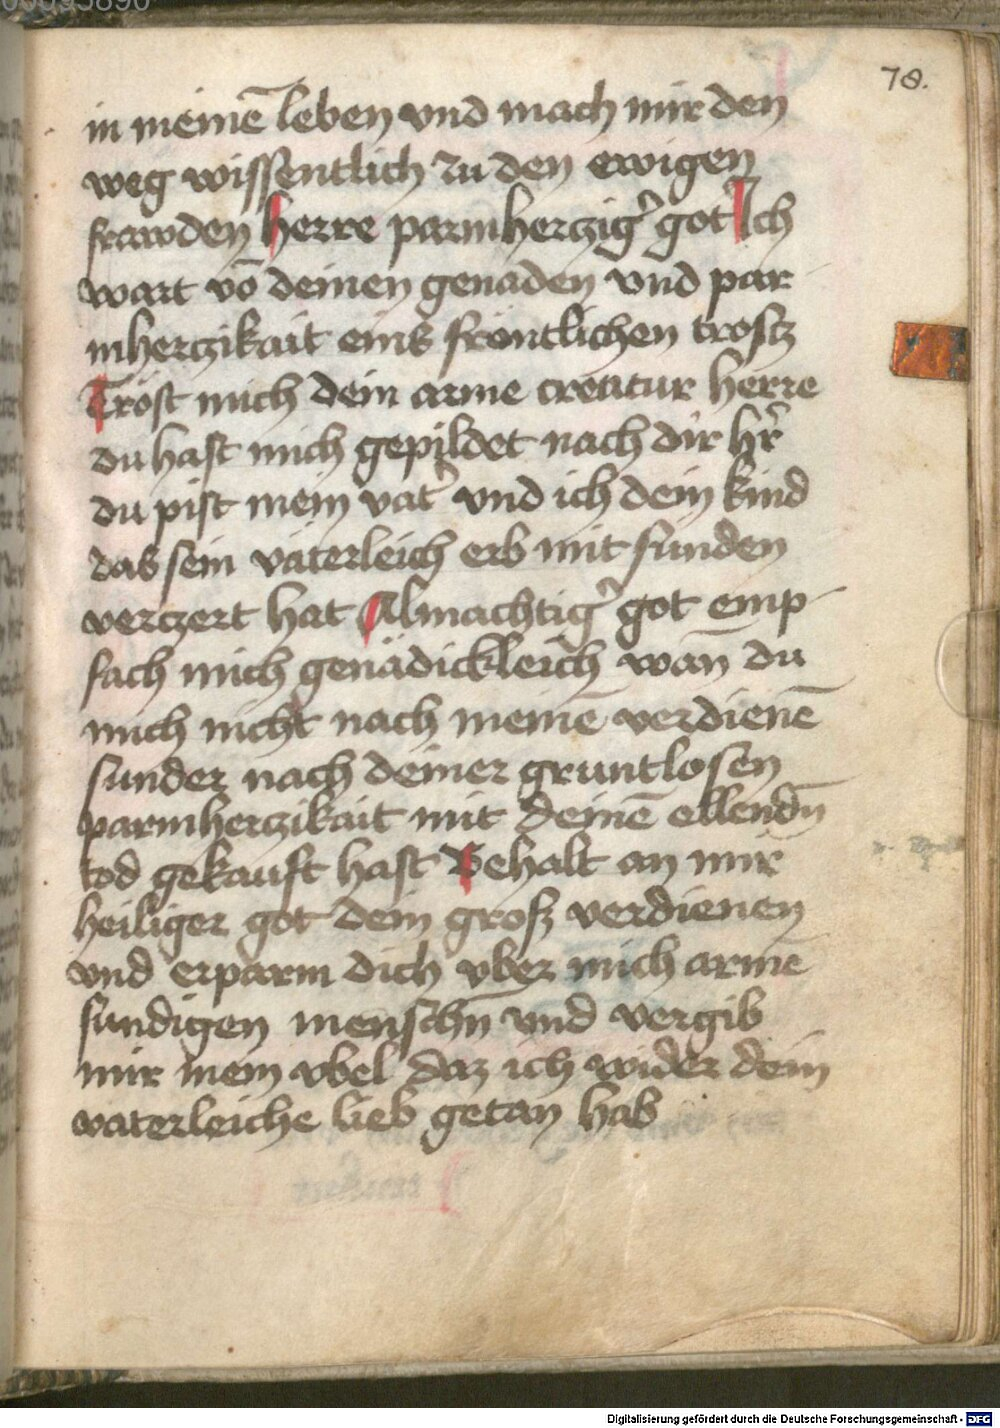 78.
in meinē leben vnd mach mir den
weg wissentlich zu den ewigen
frawden herre parmherczig͛ got Ich
wart vō deinen genaden vnd par
mherczikait eins fröntlichen trostz
Tröst mich dein arme creatur herre
du hast mich gepildet nach dir hr͛
du pist mein vat͛ vnd ich dein kind
das sein väterleich erb mit sunden
verczert hat Almachtig͛ got emp-
fach mich genädickleich wan̄ du
mich nicht nach meinē verdienē
sunder nach deiner gruntlosen
parmherczikait mit deinē ellendn̄
tod gekauft hast Behalt an mir
heiliger got dein grosz verdienen
vnd erparm dich vber mich armē
sundigen menschn̄ vnd vergib
mir mein vbel daz ich wider dein
vaterleiche lieb getan hab
Digitalisierung gefördert durch die Deutsche Forschungsgemeinschaft - DFG